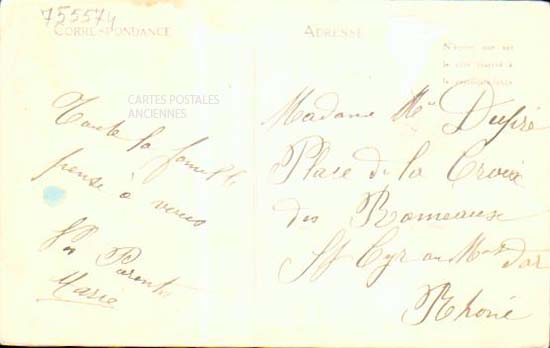 755574
CORRESPONDANCE
ADRESSE
N'écrire que sur
le côté réservé à
CARTES POSTALES
ANCIENNES
Toute la famille
pense à vous
Vos Parents
Marie
Madame Vve Dupré
Place de la Croix
des Rameaux
St Cyr au Mt d'or
Rhône